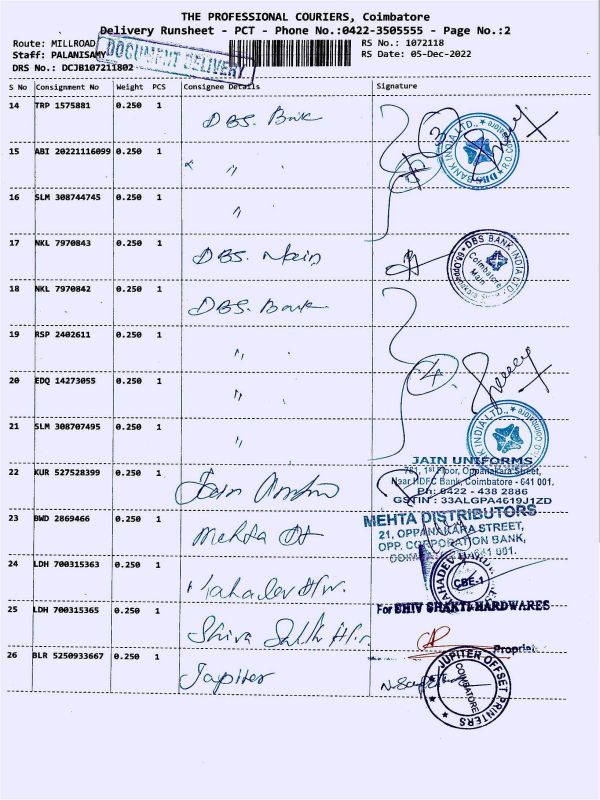 THE PROFESSIONAL COURIERS, Coimbatore
Delivery Runsheet - PCT - Phone No.:0422-3505555 - Page No.:2
Route: MILLROAD
RS No.: 1072118
Staff: PALANISAMY
RS Date: 05-Dec-2022
DOCUMENT DELIVERY
DRS No.: DCJB107211802
S No Consignment No Weight PCS Consignee Details Signature
14 TRP 1575881 0.250 1 DBS. Bank
3
15 ABI 20221116099 0.250 1 〃 〃
DBS BANK INDIA LTD., Coimbatore
16 SLM 308744745 0.250 1 〃
17 NKL 7970843 0.250 1 DBS. Main
DBS BANK INDIA LTD
Coimbatore Main
18 NKL 7970842 0.250 1 DBS. Bank
19 RSP 2402611 0.250 1 〃 〃
20 EDQ 14273055 0.250 1 〃 〃
4
21 SLM 308707495 0.250 1 〃 〃
INDIA LTD., Coimbatore
JAIN UNIFORMS
761, 1st Floor, Oppanakara Street,
Near HDFC Bank, Coimbatore - 641 001.
Ph: 0422 - 438 2886
GSTIN : 33ALGPA4619J1ZD
22 KUR 527528399 0.250 1 Jain
23 BWD 2869466 0.250 1 Mehta
MEHTA DISTRIBUTORS
21, OPPANAKARA STREET,
OPP. CORPORATION BANK,
641 001.
24 LDH 700315363 0.250 1 Mahadev H/w.
MAHADEV HARDW
CBE-1
25 LDH 700315365 0.250 1 Shiva Sakthi H/w
For SHIV SHAKTI HARDWARES
Proprie
26 BLR 5250933667 0.250 1 Jupiter
JUPITER OFFSET PRINTERS
COIMBATORE